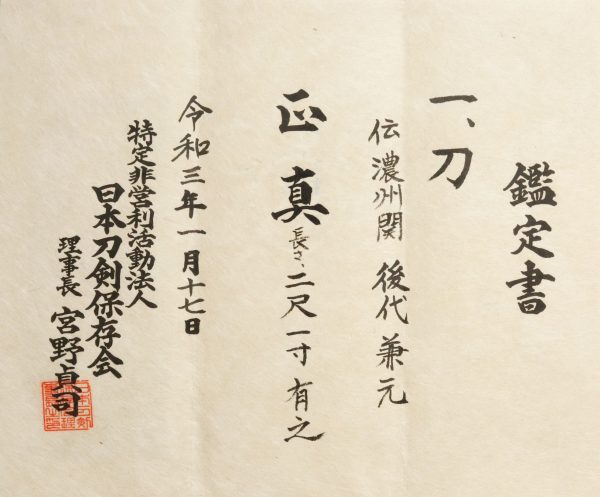 鑑定書
一、刀
伝 濃州関 後代 兼元
正真
長さ、二尺一寸 有之
令和三年一月十七日
特定非営利活動法人
日本刀剣保存会
理事長 宮野貞司